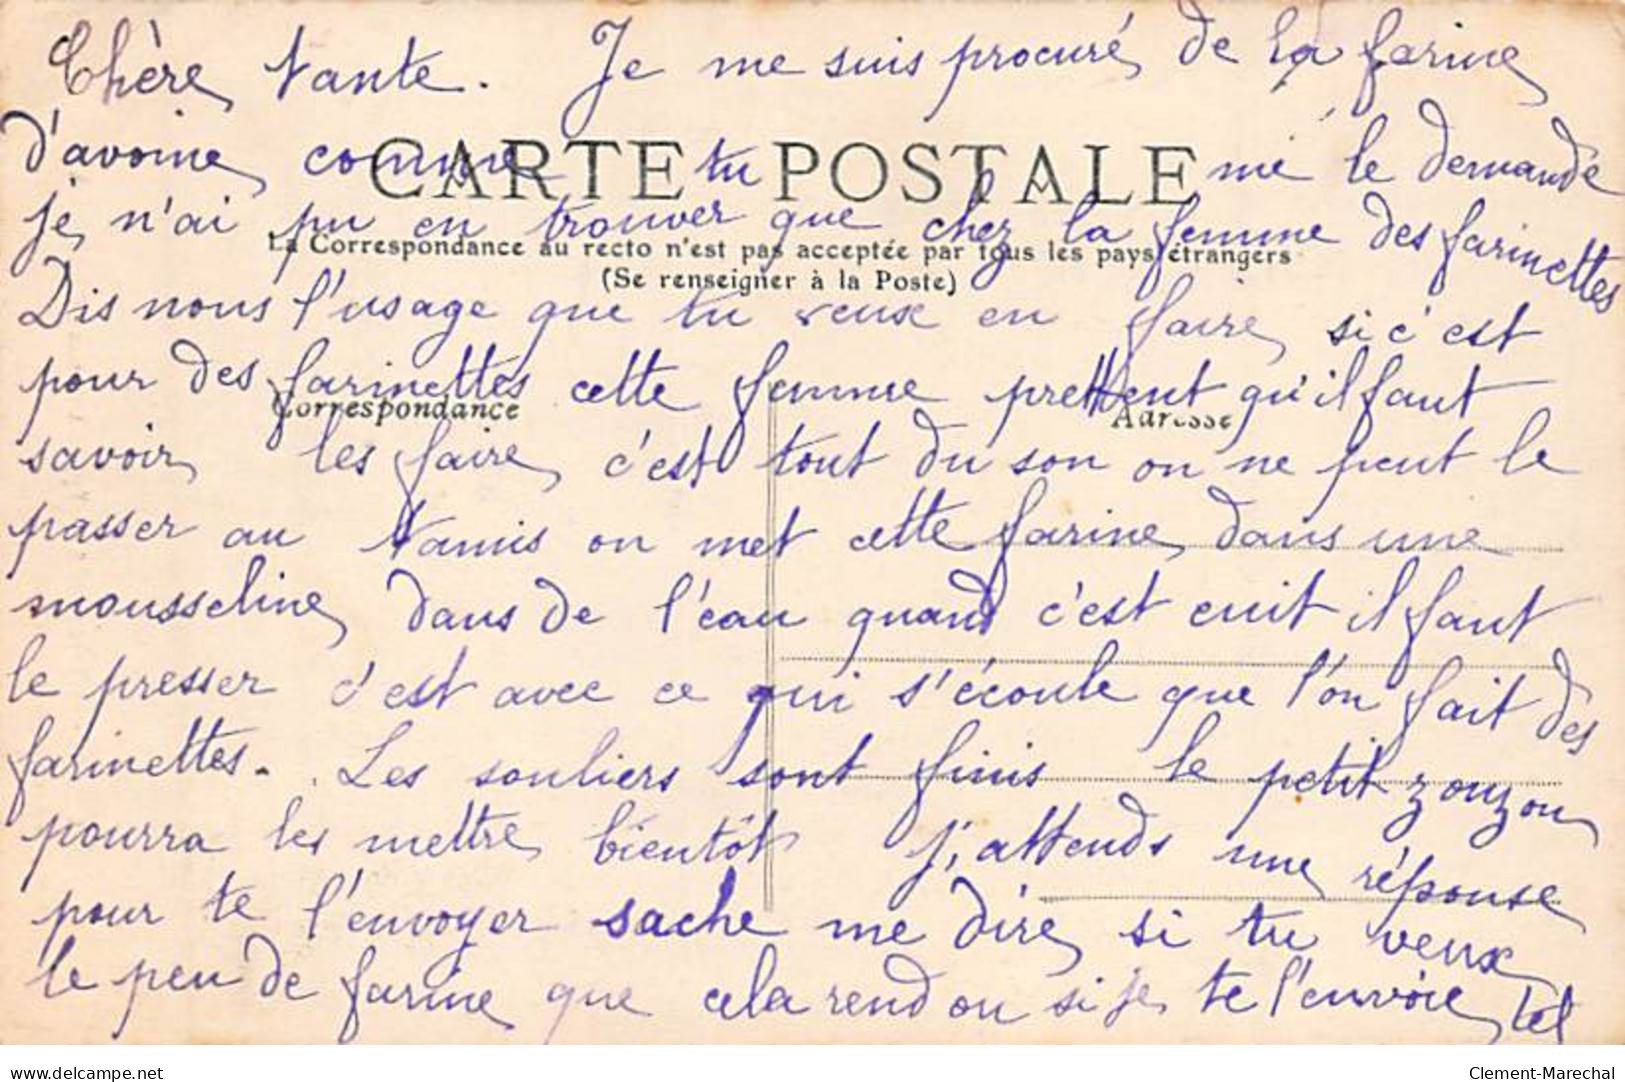 Chère tante. Je me suis procuré de la farine
d'avoine comme tu me le demande
CARTE POSTALE
je n'ai pu en trouver que chez la femme des farinettes
La Correspondance au recto n'est pas acceptée par tous les pays étrangers
(Se renseigner à la Poste)
Dis nous l'usage que tu veux en faire si c'est
pour des farinettes cette femme prettent qu'il faut
Correspondance
Adresse
savoir les faire c'est tout du son on ne peut le
passer au tamis on met cette farine dans une
mousseline dans de l'eau quand c'est cuit il faut
le presser c'est avec ce qui s'écoule que l'on fait des
farinettes. Les souliers sont finis le petit zouzou
pourra les mettre bientôt j'attends une réponse
pour te l'envoyer sache me dire si tu veux
le peu de farine que cela rend ou si je te l'envoie tel
delcampe.net
Clement-Marechal